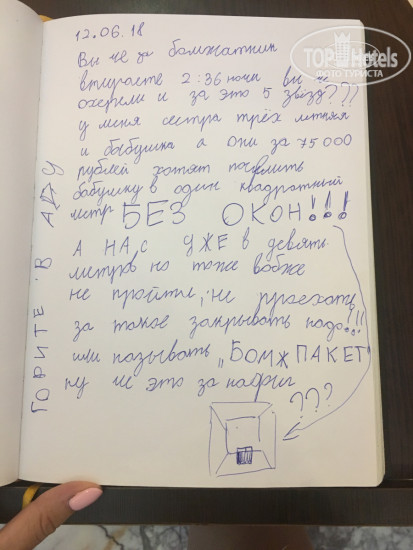 12.06.18
Вы че за бомжатник
втираете 2:36 ночи вы че
охерели и за это 5 звёзд???
у меня сестра трёх летняя
и бабушка а они за 75000
рублей хотят поселить
бабушку в один квадратный
метр БЕЗ ОКОН!!!
А НАС УЖЕ в девять
метров но тоже вобже
не пройти, не проехать
за такое закрывать надо!!!
или называть „БОМЖ ПАКЕТ"
ну че это за нафиг
???
ГОРИТЕ В АДУ
TOPHotels
ФОТО ТУРИСТА